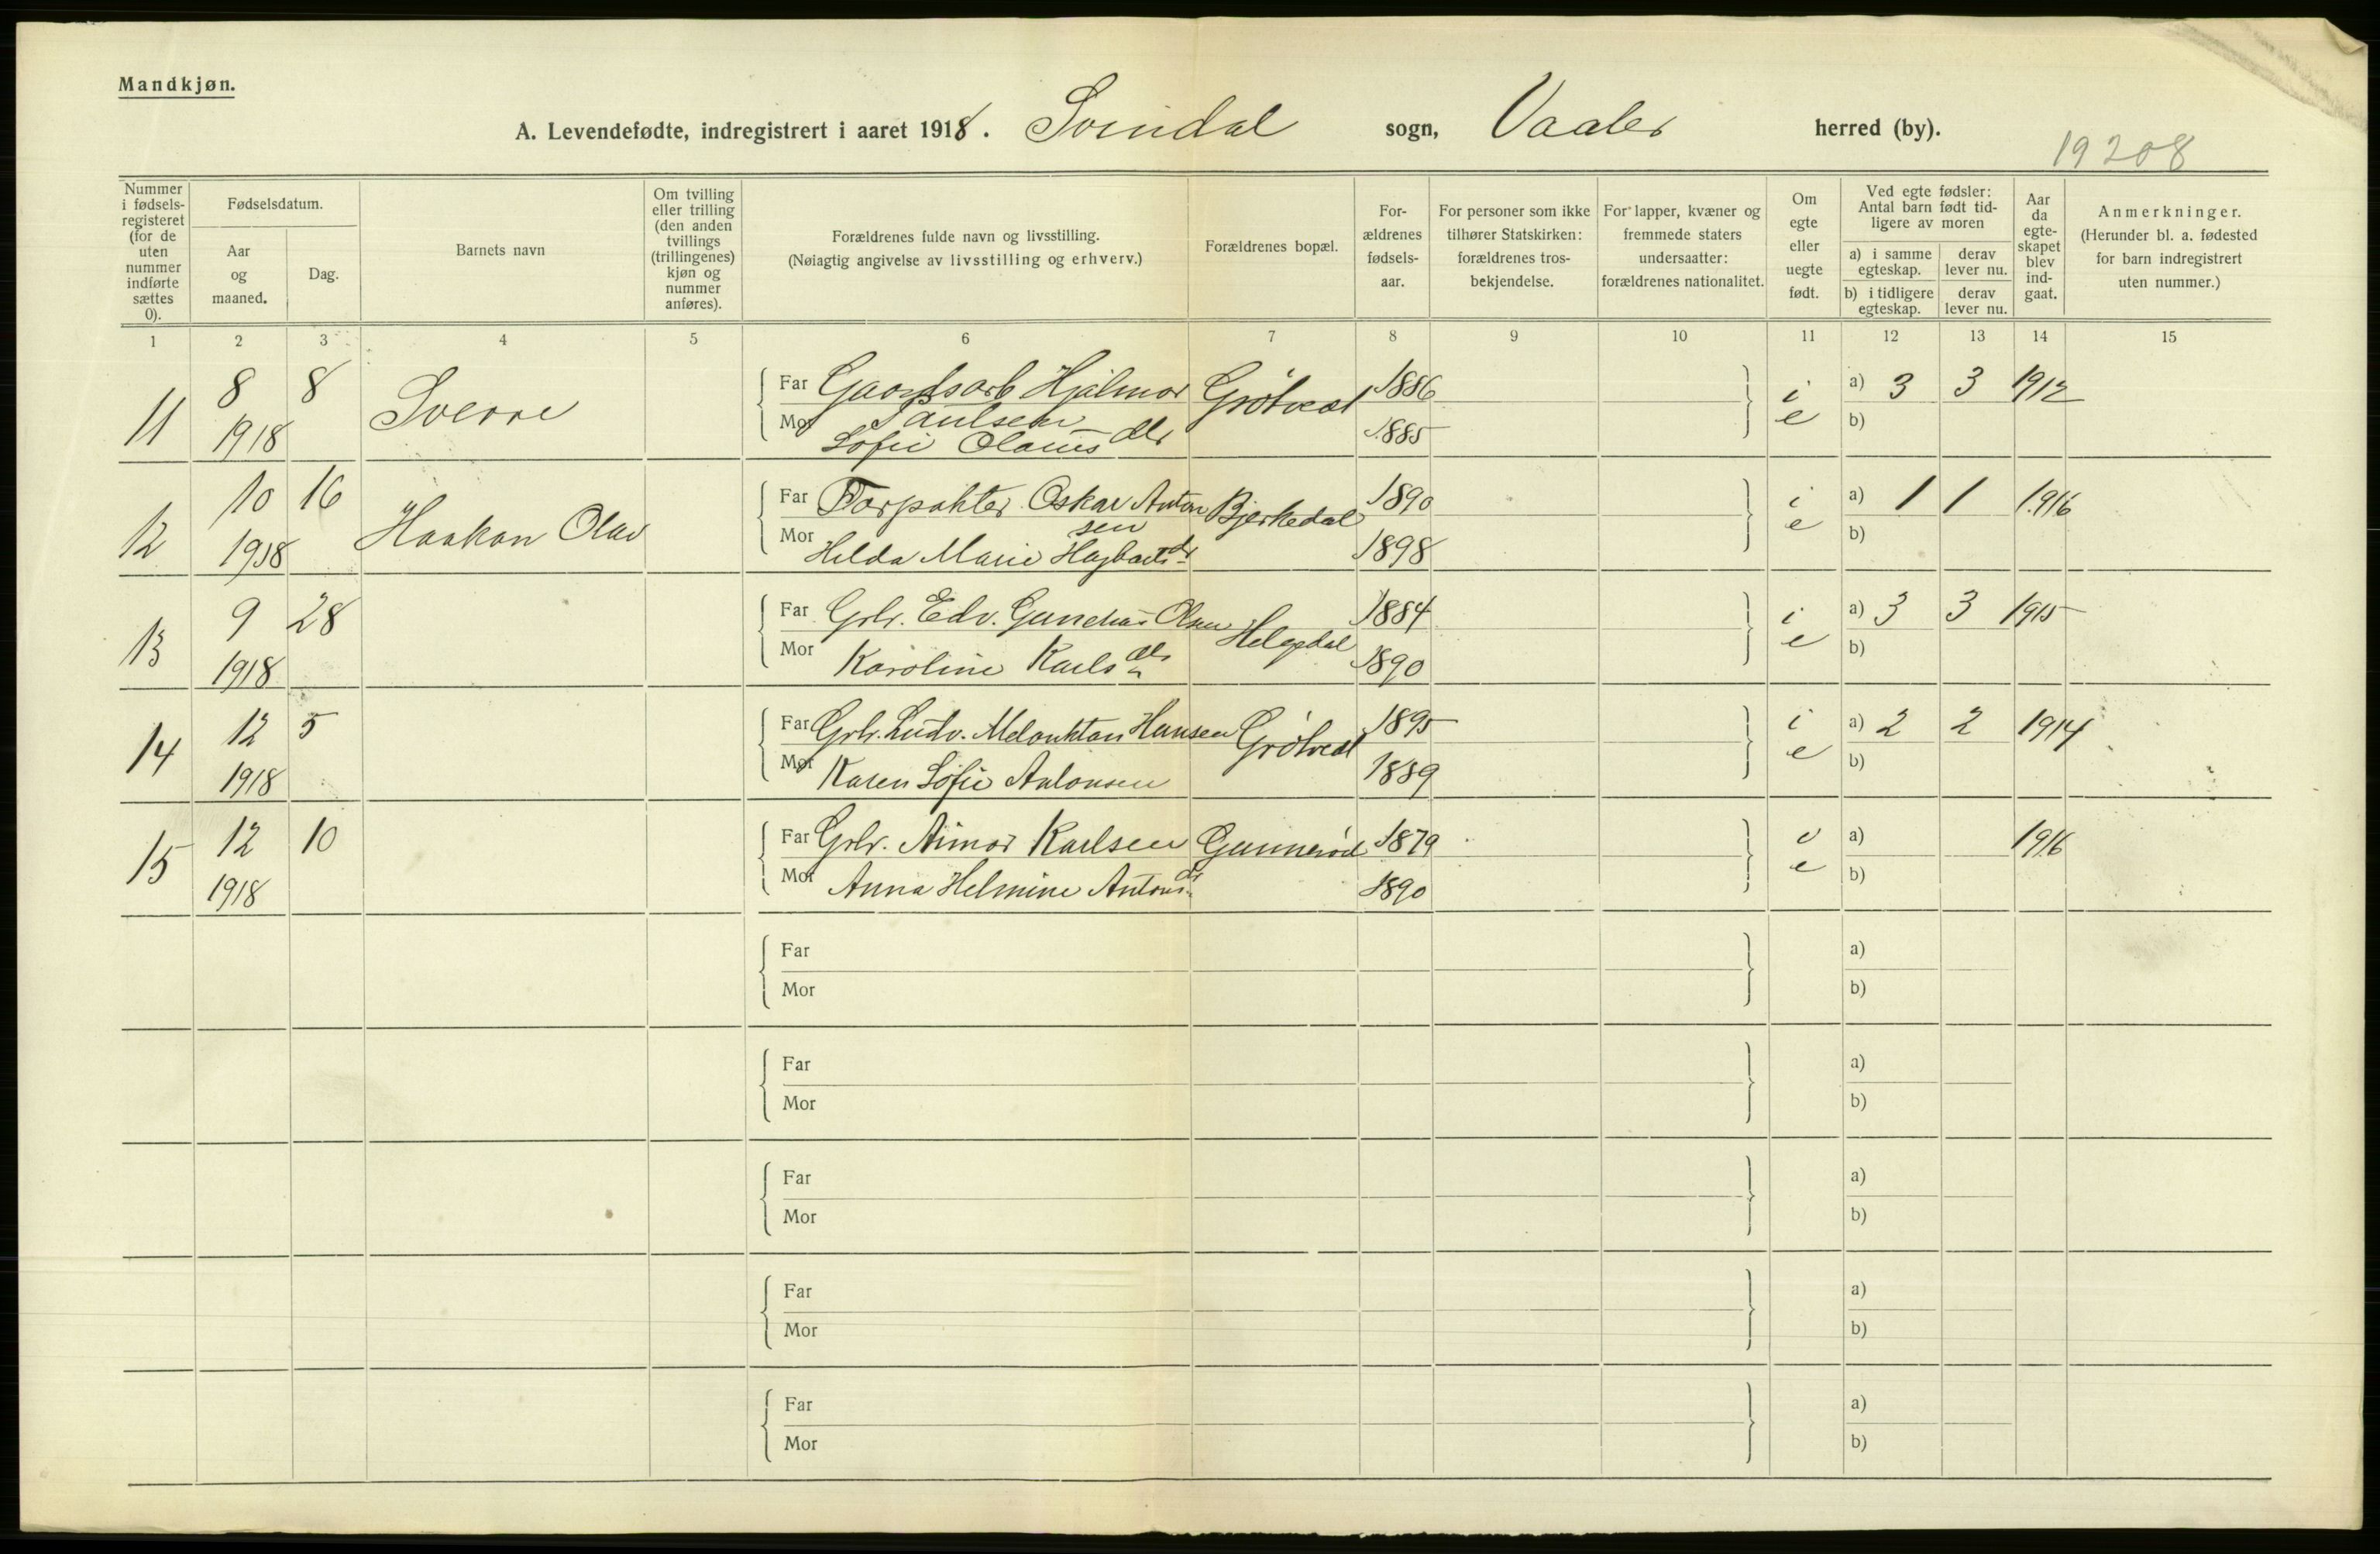 Mandkjøn.
A. Levendefødte, indregistrert i aaret 1918. Svindal sogn, Vaaler herred (by).
19208
Nummer i fødsels-registeret (for de uten nummer indførte sættes 0).
Fødselsdatum.
Aar og maaned.
Dag.
Barnets navn
Om tvilling eller trilling (den anden tvillings (trillingenes) kjøn og nummer anføres).
Forældrenes fulde navn og livsstilling.
(Nøiagtig angivelse av livsstilling og erhverv.)
Forældrenes bopæl.
For-ældrenes fødsels-aar.
For personer som ikke tilhører Statskirken: forældrenes tros-bekjendelse.
For lapper, kvæner og fremmede staters undersaatter: forældrenes nationalitet.
Om egte eller uegte født.
Ved egte fødsler: Antal barn født tid-ligere av moren
a) i samme egteskap.
derav lever nu.
b) i tidligere egteskap.
derav lever nu.
Aar da egte-skapet blev ind-gaat.
Anmerkninger.
(Herunder bl. a. fødested for barn indregistrert uten nummer.)
1 2 3 4 5 6 7 8 9 10 11 12 13 14 15
11 8 8 Sverre Far Gaardsarb Hjalmar Grötvedt 1886 i a) 3 3 1912
1918 Mor Paulsen e b)
Sofie Olaus dtr 1885
12 10 16 Haakon Olav Far Forpakter Oskar Anton Bjerkedal 1890 i a) 1 1 1916
1918 Mor sen e b)
Helda Marie Hagbarts dtr 1898
13 9 28 Far Grbr. Edv. Gunerius Olsen 1884 i a) 3 3 1915
1918 Mor Karoline Karls dtr 1890 e b)
14 12 5 Far Grbr. Ludv. Melankton Hansen Grötvedt 1895 i a) 2 2 1914
1918 Mor Karen Sofie Antonsen 1889 e b)
15 12 10 Far Grbr. Karlsen Gunnerød 1879 a) 1916
1918 Mor Anna Helmine Antons dtr 1890 e b)
Far a)
Mor b)
Far a)
Mor b)
Far a)
Mor b)
Far a)
Mor b)
Far a)
Mor b)